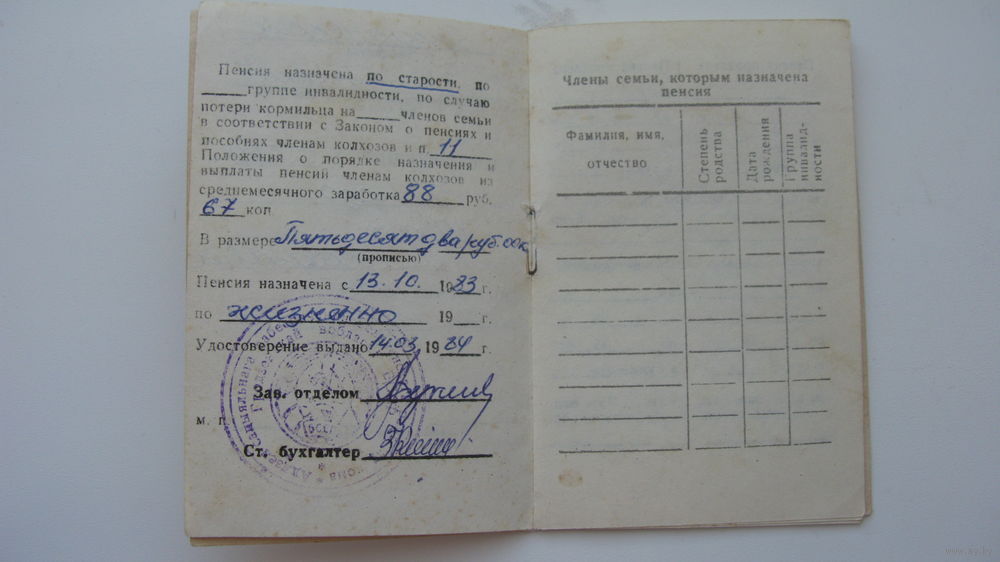 Пенсия назначена по старости, по
группе инвалидности, по случаю
потери кормильца на членов семьи
в соответствии с Законом о пенсиях и
пособиях членам колхозов и п. 11
Положения о порядке назначения и
выплаты пенсий членам колхозов из
среднемесячного заработка 88 руб.
67 коп
В размере Пятьдесят два руб. 00 к
(прописью)
Пенсия назначена с 13.10. 1983 г.
по жизненно 19 г.
Удостоверение выдано 14.03. 1984 г.
Зав. отделом
м. п.
Ст. бухгалтер
Члены семьи, которым назначена
пенсия
Фамилия, имя,
отчество
Степень
родства
Дата
рождения
Группа
инвалид-
ности
www.ay.by